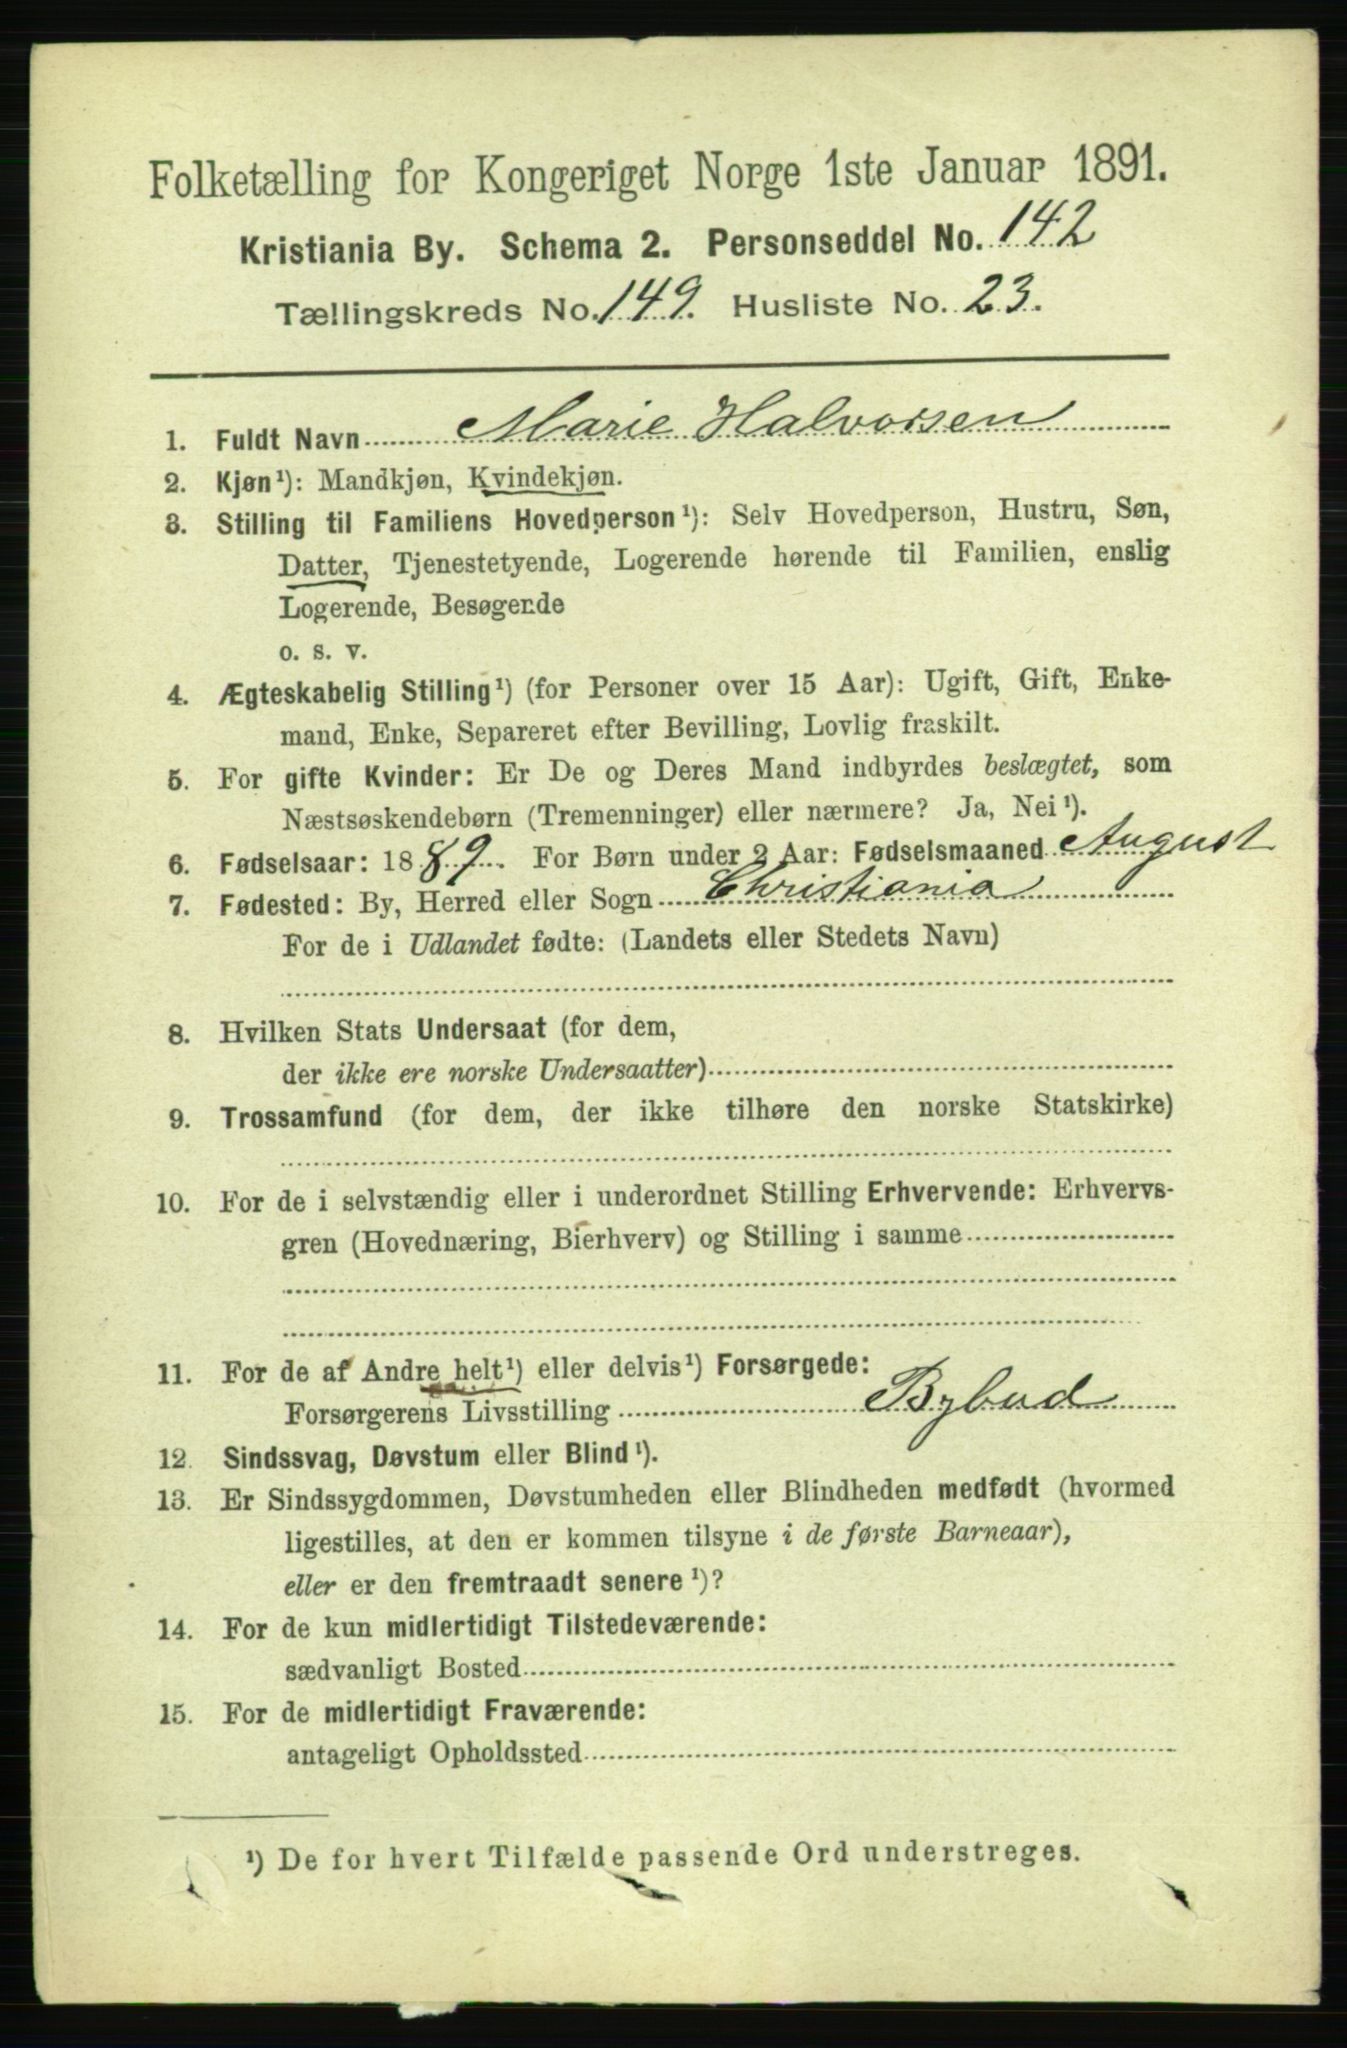 Folketælling for Kongeriget Norge 1ste Januar 1891.
Kristiania By. Schema 2. Personseddel No. 142
Tællingskreds No. 149. Husliste No. 23.
1. Fuldt Navn Marie Halvorsen
2. Kjøn¹): Mandkjøn, Kvindekjøn.
3. Stilling til Familiens Hovedperson¹): Selv Hovedperson, Hustru, Søn,
Datter, Tjenestetyende, Logerende hørende til Familien, enslig
Logerende, Besøgende
o. s. v.
4. Ægteskabelig Stilling¹) (for Personer over 15 Aar): Ugift, Gift, Enke-
mand, Enke, Separeret efter Bevilling, Lovlig fraskilt.
5. For gifte Kvinder: Er De og Deres Mand indbyrdes beslægtet, som
Næstsøskendebørn (Tremenninger) eller nærmere? Ja, Nei¹).
6. Fødselsaar: 1889. For Børn under 2 Aar: Fødselsmaaned August
7. Fødested: By, Herred eller Sogn Christiania
For de i Udlandet fødte: (Landets eller Stedets Navn)
8. Hvilken Stats Undersaat (for dem,
der ikke ere norske Undersaatter)
9. Trossamfund (for dem, der ikke tilhøre den norske Statskirke)
10. For de i selvstændig eller i underordnet Stilling Erhvervende: Erhvervs-
gren (Hovednæring, Bierhverv) og Stilling i samme
11. For de af Andre helt¹) eller delvis¹) Forsørgede:
Forsørgerens Livsstilling Bybud
12. Sindssvag, Døvstum eller Blind¹).
13. Er Sindssygdommen, Døvstumheden eller Blindheden medfødt (hvormed
ligestilles, at den er kommen tilsyne i de første Barneaar),
eller er den fremtraadt senere¹)?
14. For de kun midlertidigt Tilstedeværende:
sædvanligt Bosted
15. For de midlertidigt Fraværende:
antageligt Opholdssted
¹) De for hvert Tilfælde passende Ord understreges.